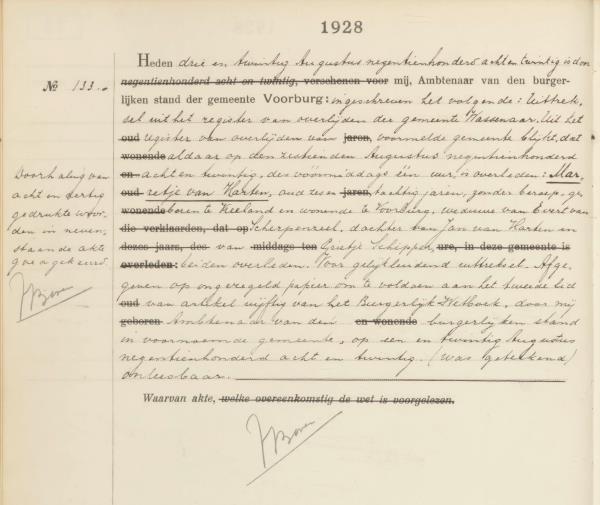 1928
№ 133.
Heden drie en twintig Augustus negentienhonderd acht en twintig is door
negentienhonderd acht en twintig, verschenen voor mij, Ambtenaar van den burger-
lijken stand der gemeente Voorburg: ingeschreven het volgende: Uittrek-
sel uit het register van overlijden der gemeente Wassenaar. Uit het
oud register van overlijden van jaren, voormelde gemeente blijkt, dat
wonende aldaar op den zestienden Augustus negentienhonderd
en acht en twintig, des voormiddags één uur, is overleden: Mar-
oud retje van Harten, oud zes en jaren, tachtig jaren, zonder beroep, ge-
wonende boren te Neeland en wonende te Voorburg, weduwe van Evert van
die verklaarden, dat op Scherpenzeel, dochter van Jan van Harten en
dezes jaars, des van middags ten Grietje Schipper, ure, in deze gemeente is
overleden: beiden overleden. Voor gelijkluidend uittreksel. Afge-
geven op ongezegeld papier om te voldoen aan het tweede lid
oud van artikel vijftig van het Burgerlijk Wetboek, door mij
geboren Ambtenaar van den en wonende burgerlijken stand
in voornoemde gemeente, op een en twintig Augustus
negentienhonderd acht en twintig. (was geteekend)
onleesbaar.
Waarvan akte, welke overeenkomstig de wet is voorgelezen.
Doorhaling van
acht en dertig
gedrukte woor-
den in neven-
staande akte
goedgekeurd.